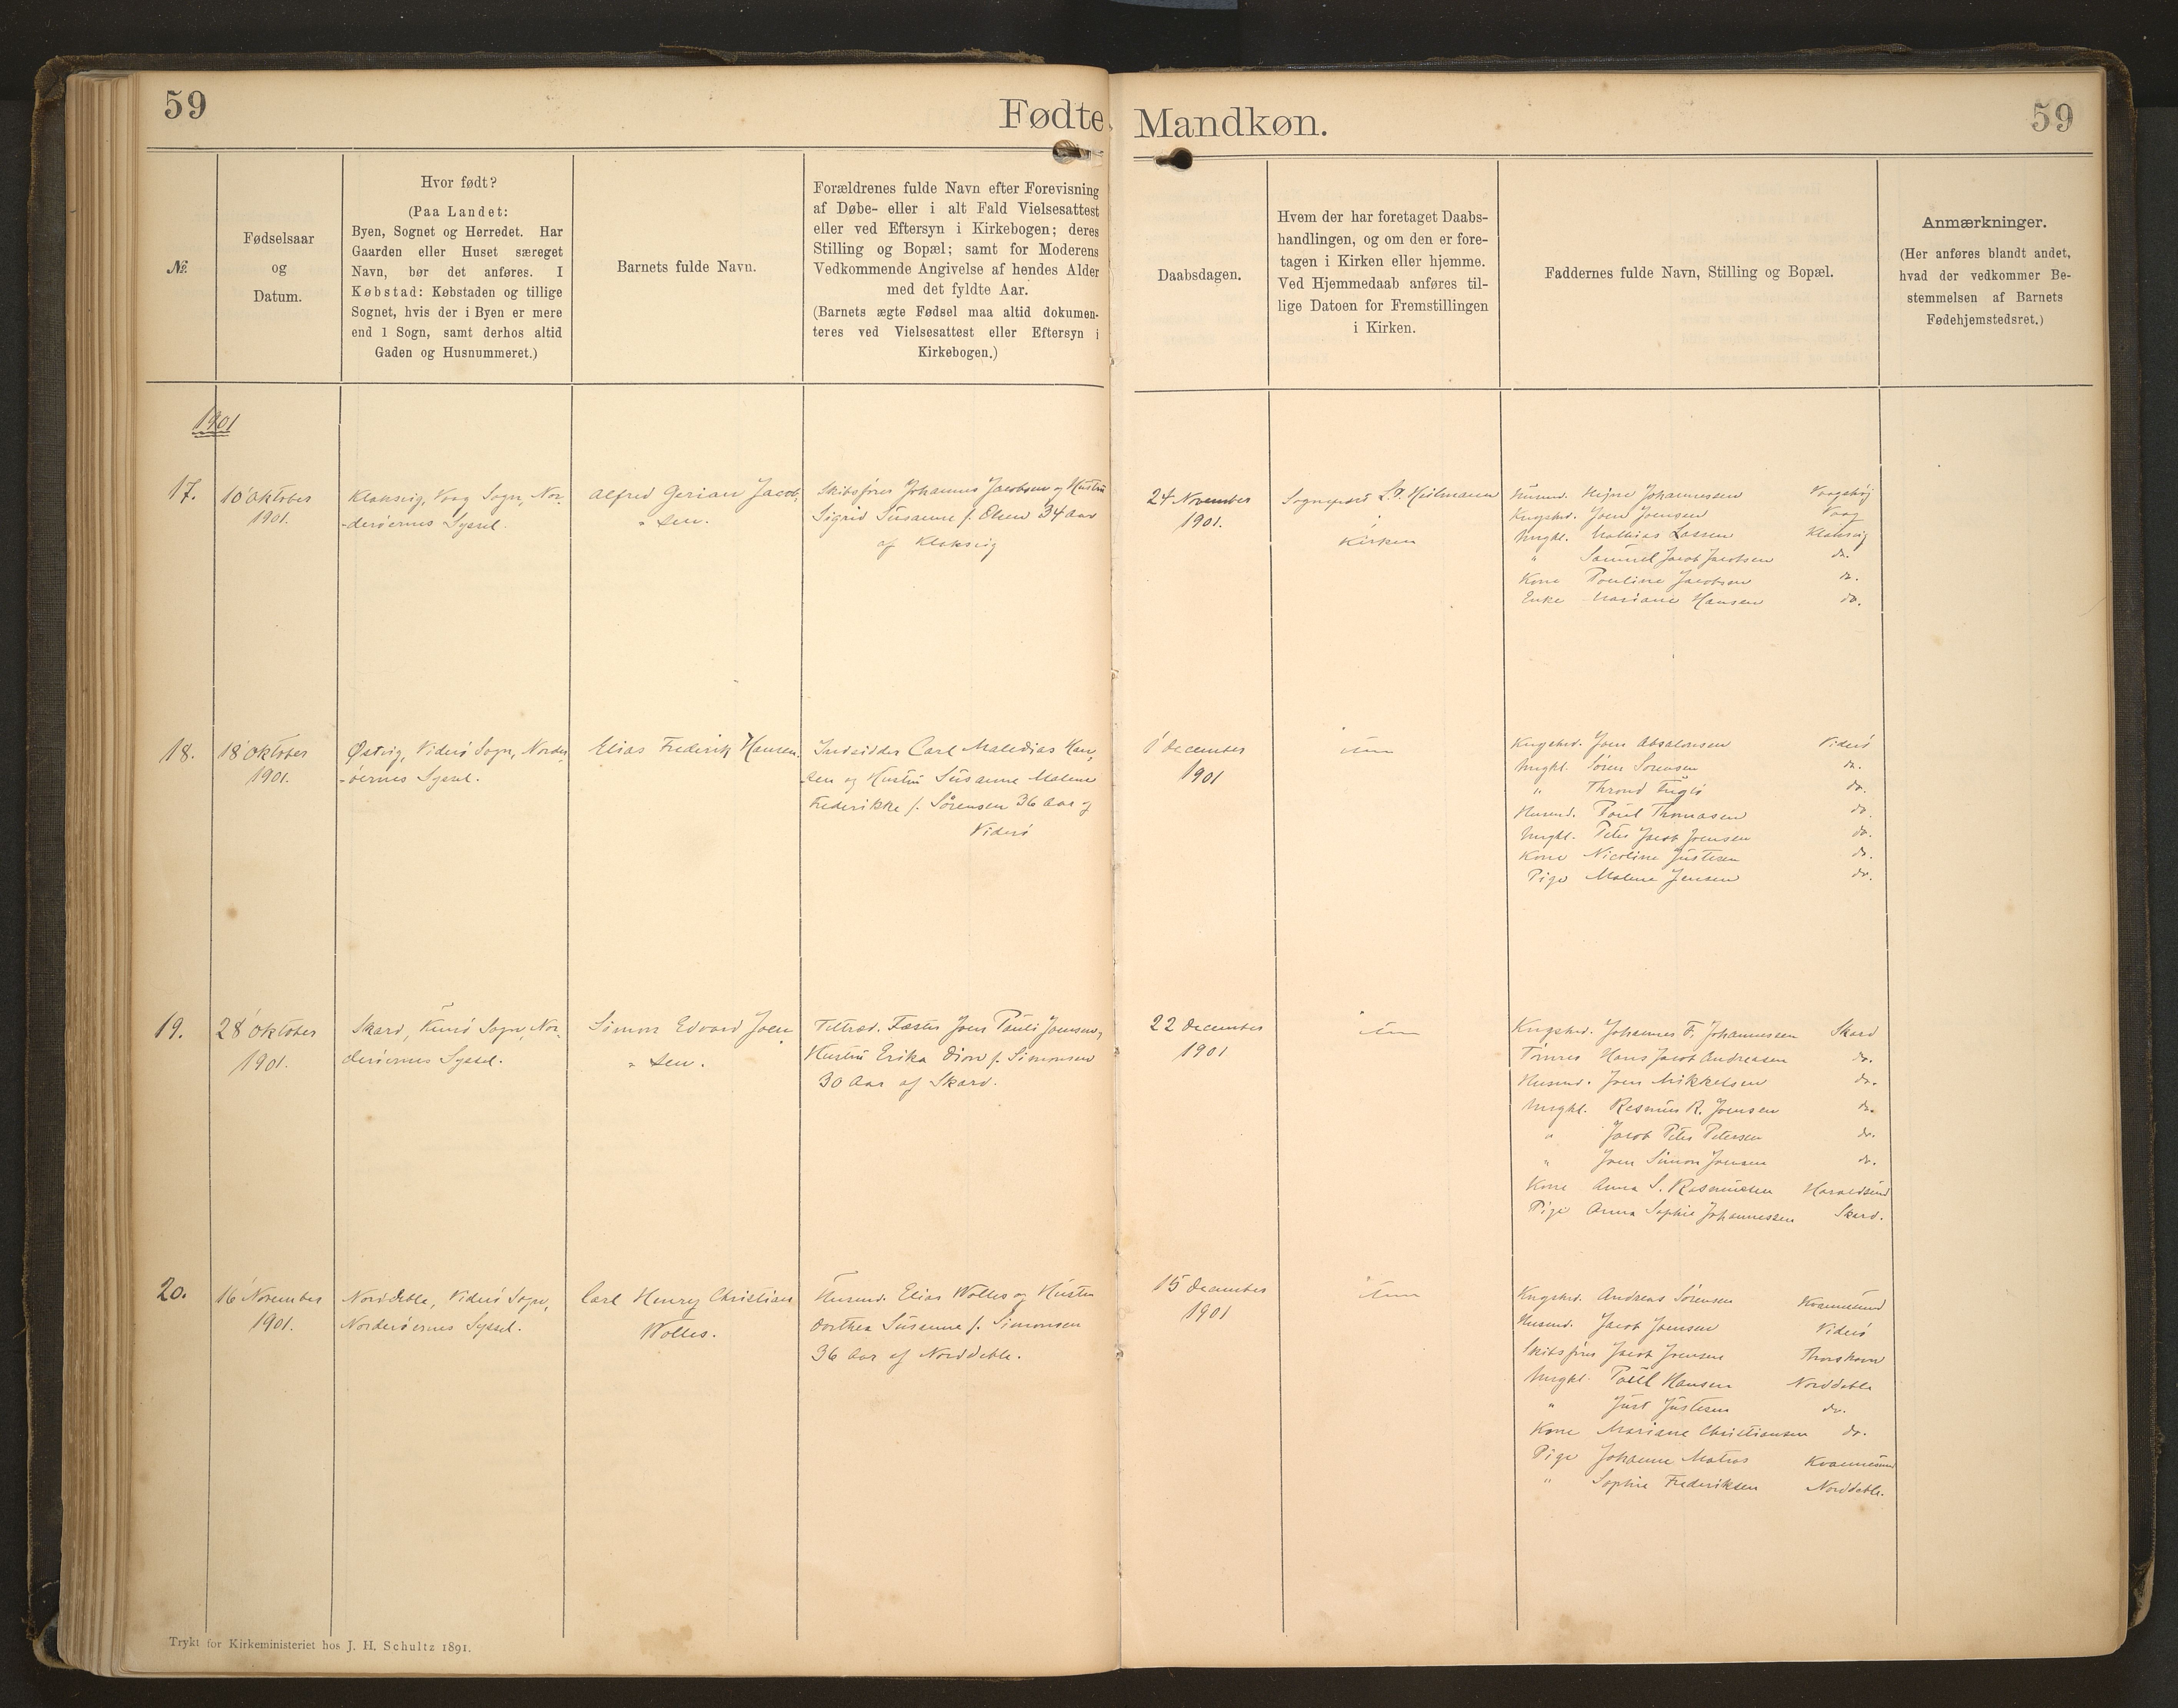 59
Fødte Mandkøn.
59
№
Fødselsaar
og
Datum.
Hvor født?
(Paa Landet:
Byen, Sognet og Herredet. Har
Gaarden eller Huset særeget
Navn, bør det anføres. I
Købstad: Købstaden og tillige
Sognet, hvis der i Byen er mere
end 1 Sogn, samt derhos altid
Gaden og Husnummeret.)
Barnets fulde Navn.
Forældrenes fulde Navn efter Forevisning
af Døbe- eller i alt Fald Vielsesattest
eller ved Eftersyn i Kirkebogen; deres
Stilling og Bopæl; samt for Moderens
Vedkommende Angivelse af hendes Alder
med det fyldte Aar.
(Barnets ægte Fødsel maa altid dokumen-
teres ved Vielsesattest eller Eftersyn i
Kirkebogen.)
Daabsdagen.
Hvem der har foretaget Daabs-
handlingen, og om den er fore-
tagen i Kirken eller hjemme.
Ved Hjemmedaab anføres til-
lige Datoen for Fremstillingen
i Kirken.
Faddernes fulde Navn, Stilling og Bopæl.
Anmærkninger.
(Her anføres blandt andet,
hvad der vedkommer Be-
stemmelsen af Barnets
Fødehjemstedsret.)
1901
17.
10 Oktober
1901.
Klaksvig, Vaag Sogn, Nor-
-derøernes Syssel.
Alfred Gerian Jacob,
" sen.
Skibsfører Johannes Jacobsen og Hustru
Sigrid Susanne f. Olsen 34 Aar
af Klaksvig
24 November
1901.
Sognepræst
i
Kirken
Husmd. Johannessen
Kngsbd. Joen Joensen Vaag
Ungkl. Mathias Lassen Klaksvig
" Samuel Jacob Jacobsen do.
Kone Pouline Jacobsen do.
Enke Mariane Hansen do.
18.
18 Oktober
1901.
Østvig, Viderø Sogn, Norder,
-øernes Syssel.
Elias Frederik Hansen.
Indsidder Carl Han,
sen og Hustru Susanne Malene
Frederikke f. Sørensen 36 Aar af
Viderø
1 December
1901
item
Kngsbd. Joen Absalonsen Viderø
Ungkl. Søren Sørensen do.
" Thrond Fuglø do.
Husmd. Poul Thomasen do.
Ungkl. Peter Jacob Joensen do.
Kone Nicoline Justesen do.
Pige Malene Jensen do.
19.
28 Oktober
1901.
Skard, Kunø Sogn, Nor-
derøernes Syssel.
Simon Edvard Joen
" sen.
Fæster Joen Pauli Joensen,
Hustru Erika Dion f. Simonsen
30 Aar af Skard.
22 December
1901
item
Kngsbd. Johannes F. Johannessen Skard
Tømrer Hans Jacob Andreasen do.
Husmd. Joen Mikkelsen do.
Ungkl. Rasmus R. Joensen do.
" Jacob Peter Petersen do.
" Joen Simon Joensen do.
Kone Anna S. Rasmussen Haraldsund
Pige Anna Sophie Johannessen Skard.
20.
16 November
1901.
Norddeble, Viderø Sogn,
Norderøernes Syssel.
Carl Henry Christian
Wolles.
Husmd. Elias Wolles og Hustru
Dorthea Susanne f. Simonsen
36 Aar af Norddeble.
15 December
1901
item
Kngsbd. Andreas Sørensen Kvannesund
Husmd. Jacob Joensen Viderø
Skibsfører Jacob Joensen Thorshavn
Ungkl. Poul Hansen Norddeble
" Just Justesen do.
Kone Mariane Christiansen do.
Pige Johanne Matras Kvannesund
" Sophie Frederiksen Norddeble.
Trykt for Kirkeministeriet hos J. H. Schultz 1891.